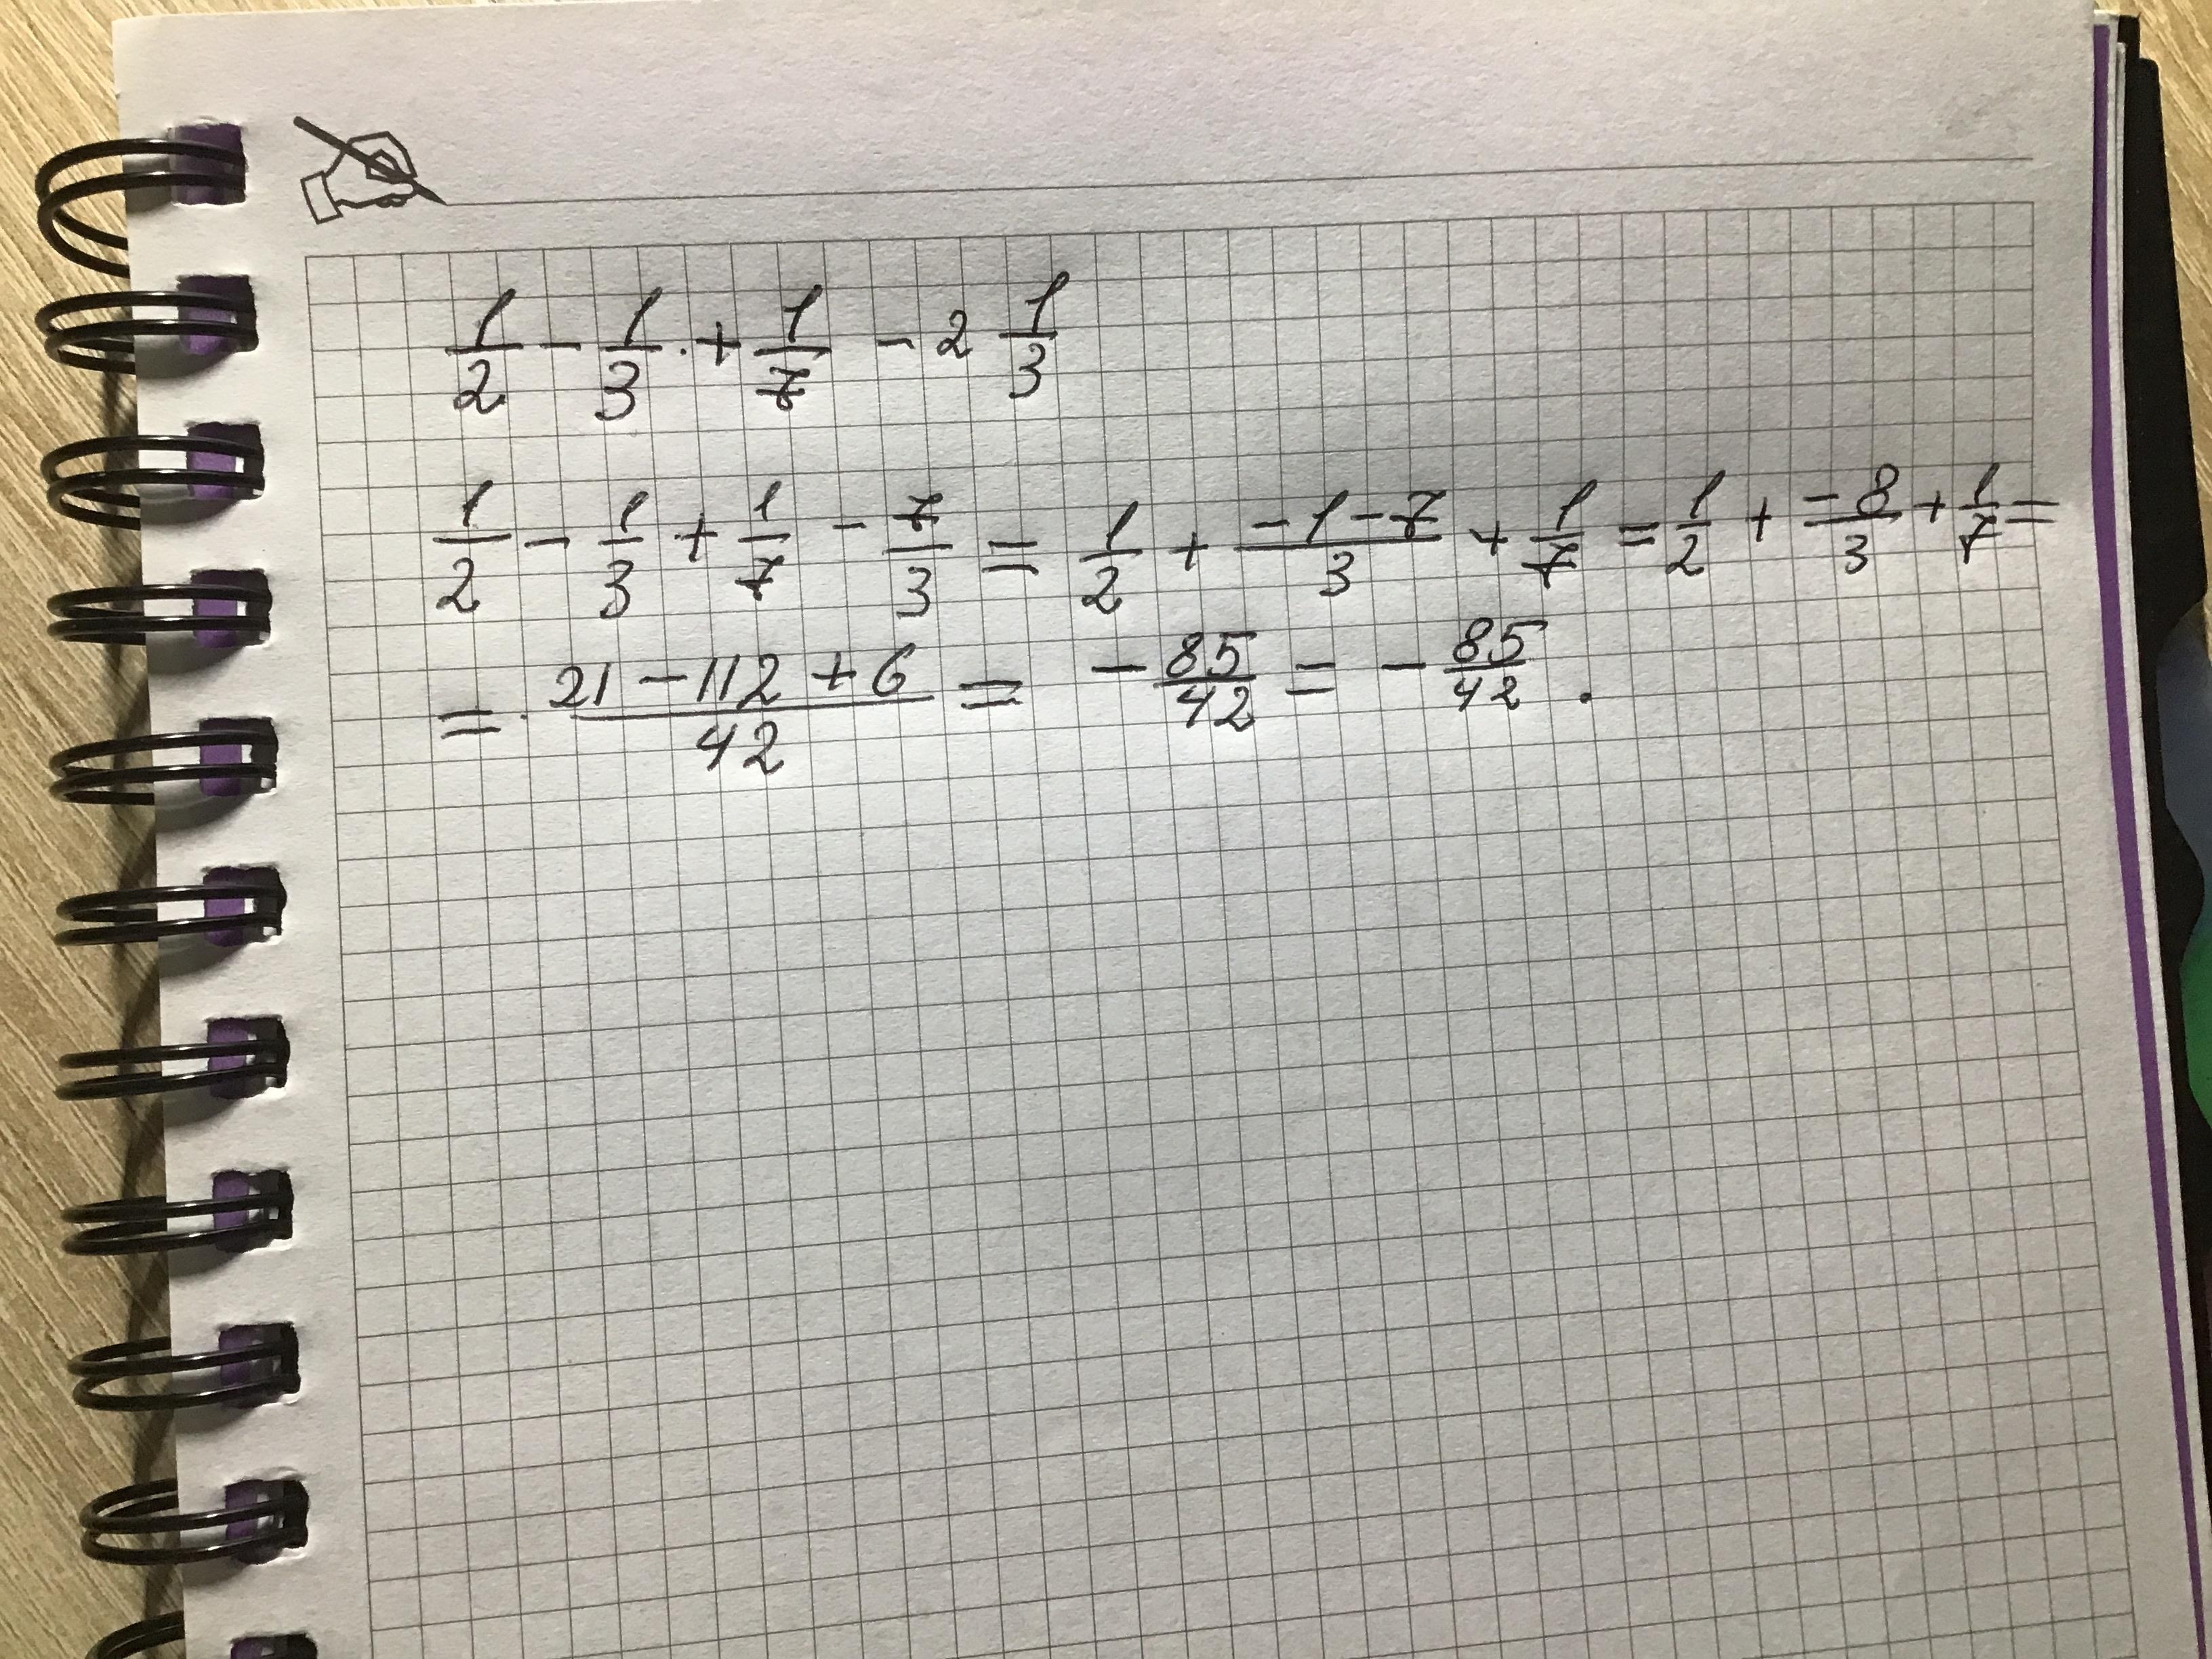 1/2 - 1/3 . + 1/7 - 2 1/3
1/2 - 1/3 + 1/7 - 7/3 = 1/2 + (-1-7)/3 + 1/7 = 1/2 + (-8)/3 + 1/7 =
= (21 - 112 + 6)/42 = - 85/42 = - 85/42 .